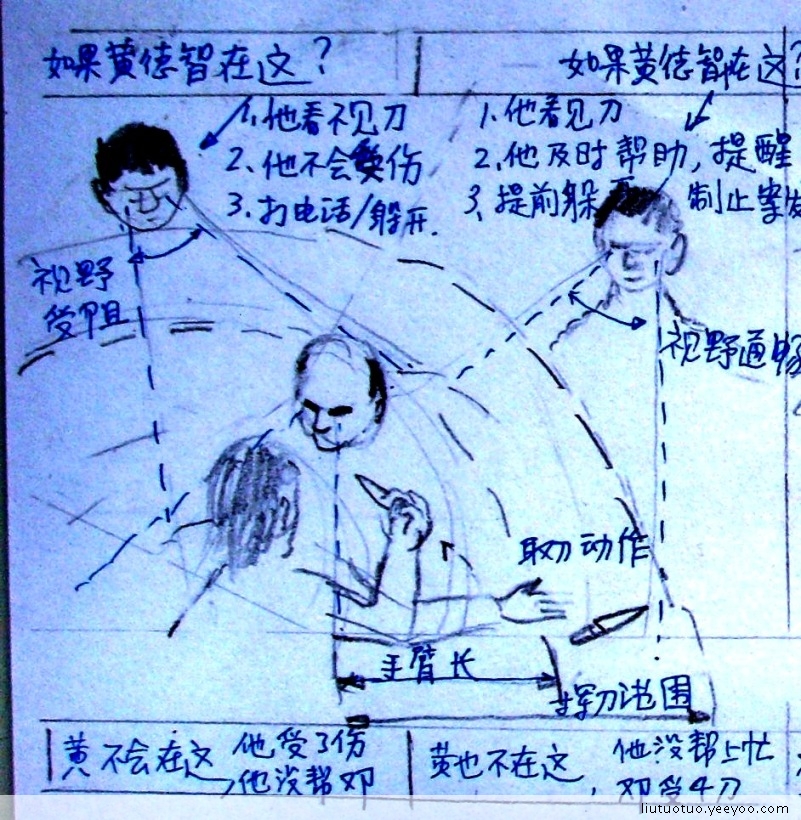 如果黄德智在这?
如果黄德智在这?
1.他看不见刀
2、他不会受伤
3.打电话/躲开.
1.他看见刀
2.他及时帮助,提醒
3、提前躲
制止案发
视野
受阻
视野通畅
取刀动作
手臂长
挥刀范围
黄不会在这,
他受了伤
他没帮邓
黄也不在这,
他没帮上忙
邓受4刀
liutuotuo.yeeyoo.com